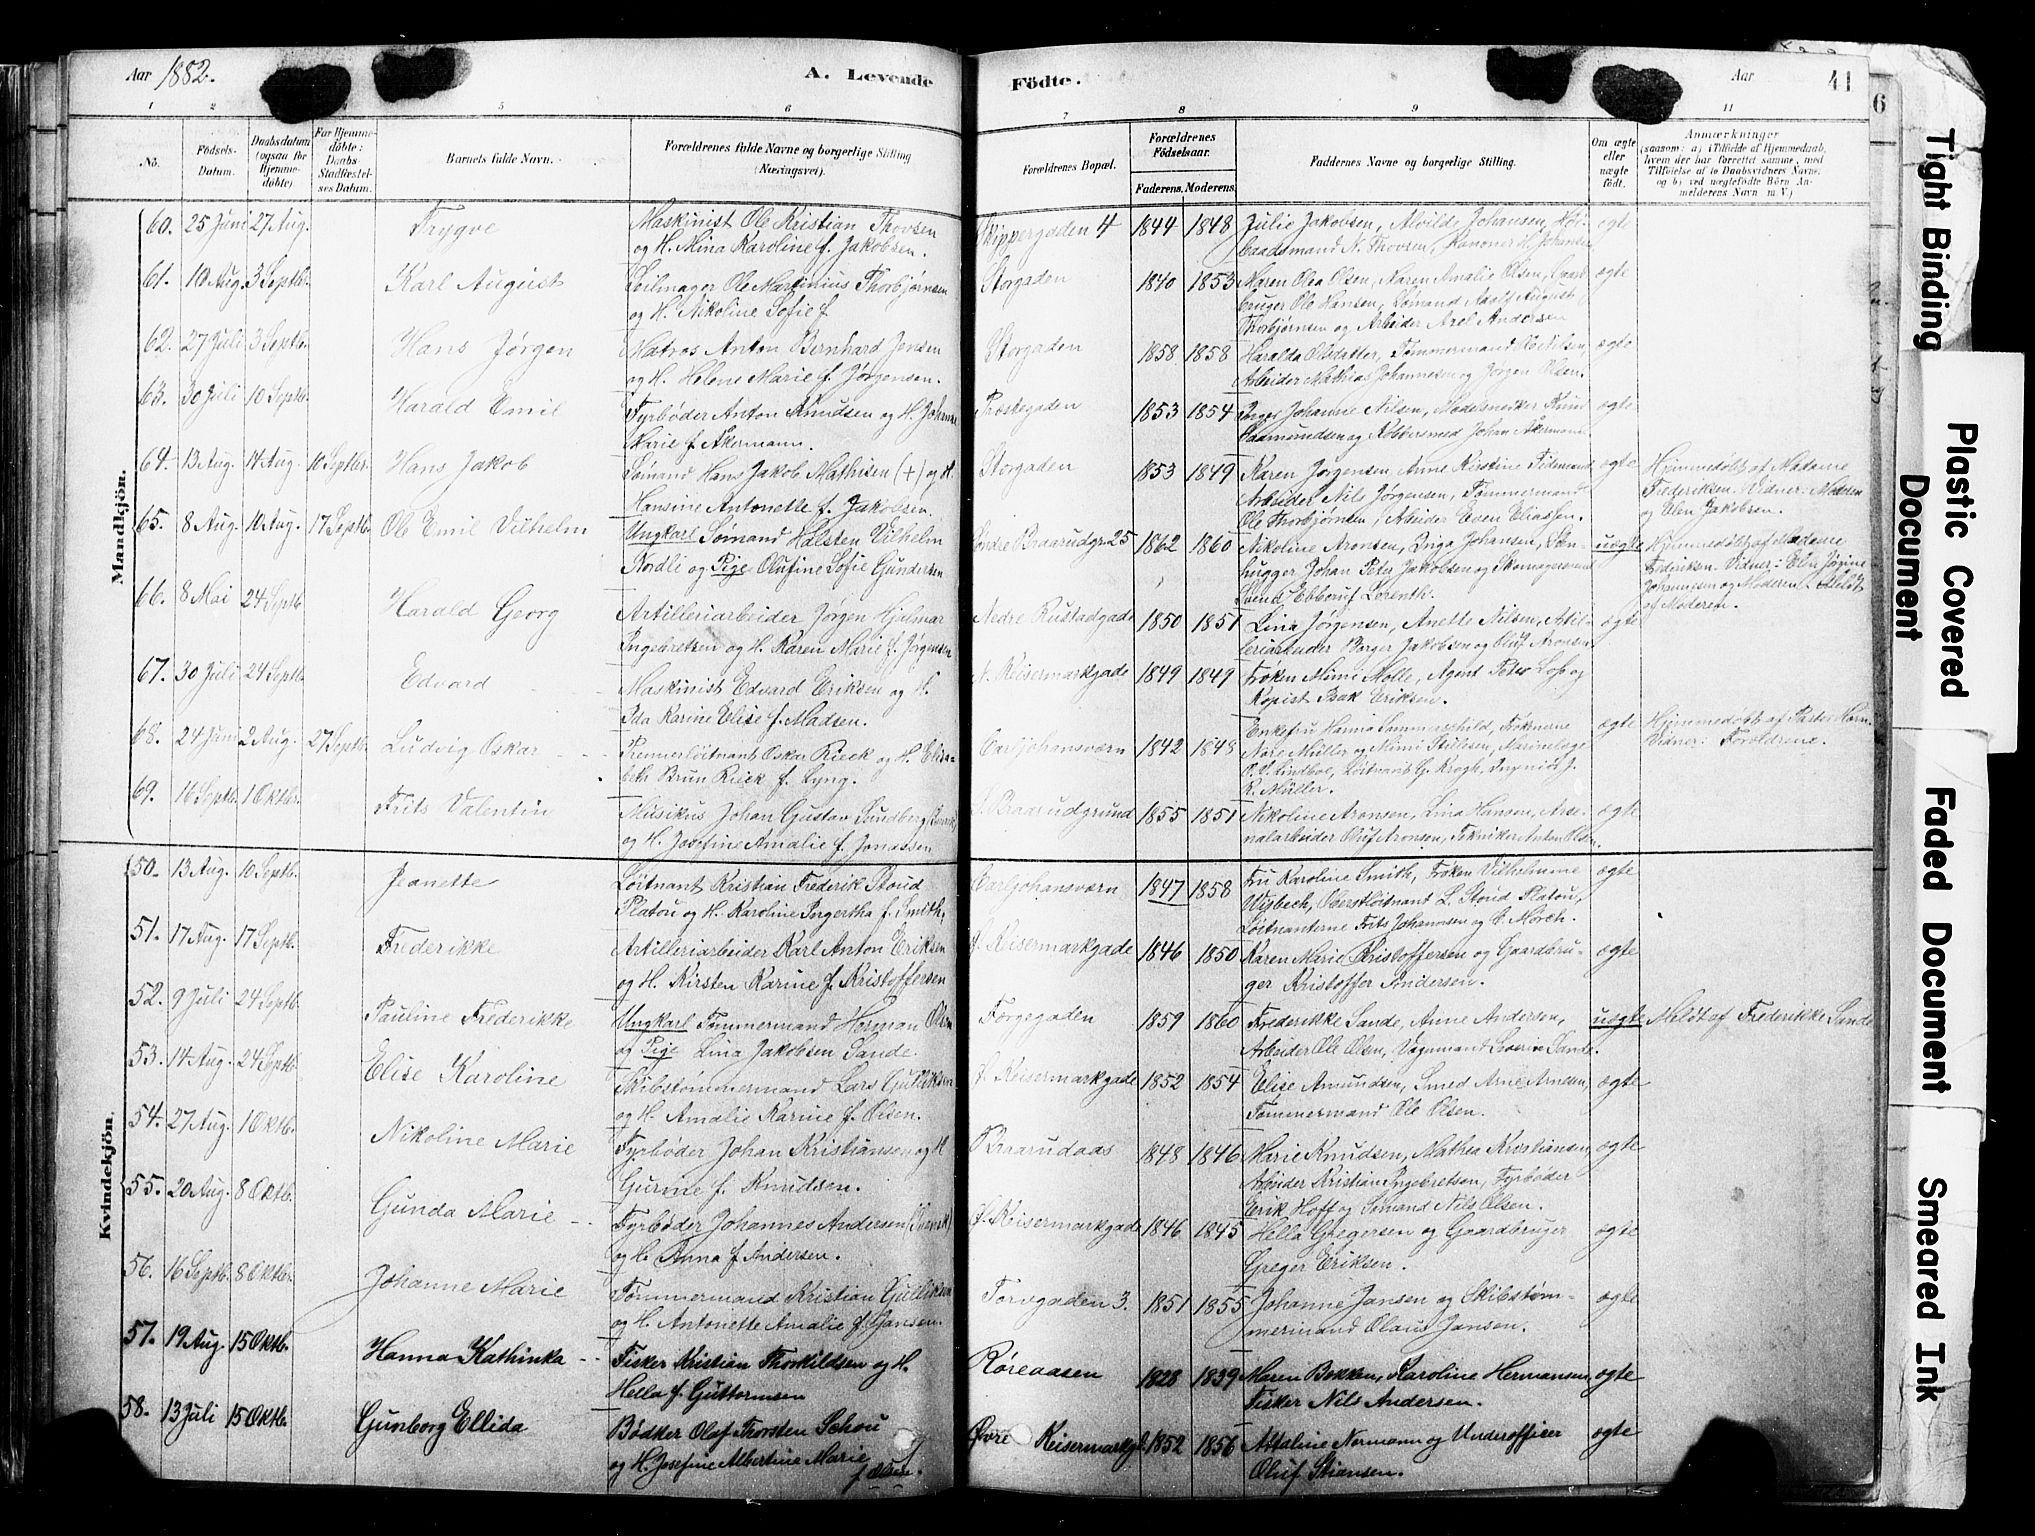 Aar 1882.
A. Levende
Födte.
Aar
41
6
1 2 5 6 7 8 9 11
No.
Födsels-Datum.
Daabsdatum (ogsaa for Hjemmedöbte)
For Hjemmedöbte: Daabs-Stadfæstelses Datum.
Barnets fulde Navn.
Forældrenes fulde Navne og borgerlige Stilling (Næringsvei).
Forældrenes Bopæl.
Forældrenes Födselsaar.
Faderens. Moderens.
Faddernes Navne og borgerlige Stilling.
Om ægte eller uægte födt.
Anmærkninger
(saasom: a) i Tilfælde af Hjemmedaab, hvem der har forrettet samme, med Tilföielse af to Daabsvidners Navne, og b) ved uægtefödte Börn Anmelderens Navn m. V.)
Mandkjön.
60. 25 Juni 27 Aug. Trygve Maskinist Ole Kristian Thovsen og H. Mina Karoline f. Jakobsen. Skippergaden 4 1844 1848 Julie Jakobsen, Johansen, N. Thovsen, Kanoner H. Johansen ægte
61. 10 Aug. 3 Septb. Karl August Seilmager Ole Martinius Thorbjørnsen og H. Nikoline Sofie f Storgaden 1840 1853 Maren Olea Olsen, Maren Amalie Olsen, Gaardbruger Ole Hansen, Sømand Adolf August Thorbjørnsen og Arbeider Axel Andersen ægte
62. 27 Juli 3 Septb. Hans Jørgen Matros Anton Bernhard Jensen og H. Helene Marie f. Jørgensen. Storgaden 1858 1858 Haralda Olsdatter, Tømmermand Nilsen, Arbeider Mathias Johannesen og Jørgen Olsen. ægte
63. 30 Juli 10 Septb. Harald Emil Fyrbøder Anton Knudsen og H. Johanne Marie f. Åkermann. 1853 1854 Inger Johanne Nilsen, Modelsnedker Knud Aamundsen og Kobbersmed Johan Åkermann ægte
64. 13 Aug. 14 Aug. 10 Septbr. Hans Jakob Sømand Hans Jakob Mathisen (+) og H. Hansine Antonette f. Jakobsen. Storgaden 1853 1849 Karen Jørgensen, Anne Kirstine Tidemand, Arbeider Nils Jørgensen, Tømmermand Ole Thorbjørnsen, Arbeider Even Eliassen. ægte Hjemmedøbt af Madame Frederiksen. Vidner: Moderen og Elen Jakobsen.
65. 8 Aug. 10 Aug. 17 Septbr. Ole Emil Vilhelm Ungkarl Sømand Halsten Vilhelm Nordli og Pige Olufine Sofie Gundersen Søndre Braarudgr. 25 1862 1860 Nikoline Aronsen, Inga Johansen, Stenhugger Johan Peter Jakobsen og Skomagersvend Lorenth. uægte Hjemmedøbt af Madame Frederiksen. Vidner: Elen Jørgine Johannesen og Moderen. Meldt af Moderen.
66. 8 Mai 24 Septb. Harald Georg Artilleriarbeider Jørgen Hjalmar Ingebretsen og H. Karen Marie f. Jørgensen Nedre Rustadgade 1850 1851 Lina Jørgensen, Anette Nilsen, Artilleriarbeider Børger Jakobsen og Oluf Aronsen ægte
67. 30 Juli 24 Septb. Edvard Maskinist Edvard Eriksen og H. Ida Karine Elise f. Madsen. N. Keisermarkgade 1849 1849 Frøken Mimi Molle, Agent Peter og Kopist Isak Eriksen. ægte
68. 24 Juni 2 Aug. 27 Septb. Ludvig Oskar Premierløitnant Oskar Rieck og H. Elisabeth Brun Rieck f. Lyng. Carljohansværn 1842 1848 Enkefru Hanna Sommerschild, Frøknerne Müller og Mimi Stillesen, Marinelæge O. V. Lindboe, Løitnant G. Krogh, Ingeniør J. R. Müller. ægte Hjemmedøbt af Pastor Horn. Vidner: Forældrene.
69. 16 Septb. 1 Oktbr. Frits Valentin Musikus Johan Gustav Sundberg (Svensk) og H. Josefine Amalie f. Jonassen Braarudgrund 1855 1851 Nikoline Aronsen, Lina Hansen, Arsenalarbeider Oluf Aronsen, Tekniker Anton Olsen. ægte
Kvindekjön.
50. 13 Aug. 10 Septb. Jeanette Løitnant Kristian Frederik Stoud Platou og H. Karoline Ingertha f. Smith. Carljohansværn 1847 1858 Fru Karoline Smith, Frøken Vilhelmine Wisbech, Oberstløitnant L. Stoud Platou, Løitnanterne Frits Johannsen og C. Mørch. ægte
51. 17 Aug. 17 Septb. Frederikke Artilleriarbeider Karl Anton Eriksen og H. Kirsten Karine f. Kristoffersen Keisermarkgade 1846 1850 Karen Marie Kristoffersen og Gaardbruger Kristoffer Andersen. ægte
52. 9 Juli 24 Septb. Pauline Frederikke Ungkarl Tømmermand Herman Olsen og Pige Lina Jakobsen Sande. 1859 1860 Frederikke Sande, Anne Andersen, Arbeider Ole Olsen, Vognmand Severin Sande. uægte Meldt af Frederikke Sande
53. 14 Aug. 24 Septb. Elise Karoline Skibstømmermand Lars Gulliksen og H. Amalie Karine f. Olsen. Keisermarkgade 1852 1854 Elise Amundsen, Smed Arne Arnesen, Tømmermand Ole Olsen. ægte
54. 27 Aug. 1 Oktb. Nikoline Marie Fyrbøder Johan Kristiansen og H Gurine f. Knudsen. Braarudaas 1848 1846 Marie Knudsen, Mathea Kristiansen, Arbeider Kristian Ingebretsen, Fyrbøder Erik Hoff og Sømand Nils Olsen. ægte
55. 20 Aug. 8 Oktb. Gunda Marie Fyrbøder Johannes Andersen (Svensk) og H. Anna f. Andersen. Ø. Keisermarkgade 1846 1845 Hella Gregersen og Gaardbruger Greger Eriksen. ægte
56. 16 Septb. 8 Oktbr. Johanne Marie Tømmermand Kristian Gulliksen og H. Antonette Amalie f. Jansen. Torvgaden 3. 1851 1855 Johanne Jansen og Skibstømmermand Olaus Jansen. ægte
57. 19 Aug. 15 Oktb. Hanna Kathinka Fisker Kristian Thorkildsen og H. Hella f. Guttormsen Røreaasen 1828 1839 Maren Bekken, Karoline Hermansen, Fisker Nils Andersen. ægte
58. 13 Juli 15 Oktb. Gunborg Ellida Bødker Olaf Thorsten Schou og H. Josefine Albertine Marie f. Olsen. Øvre Keisermarkgd. 1852 1856 Attaline Normann og Underofficer Oluf Stiansen. ægte
Tight Binding
Plastic Covered Document
Faded Document
Smeared Ink